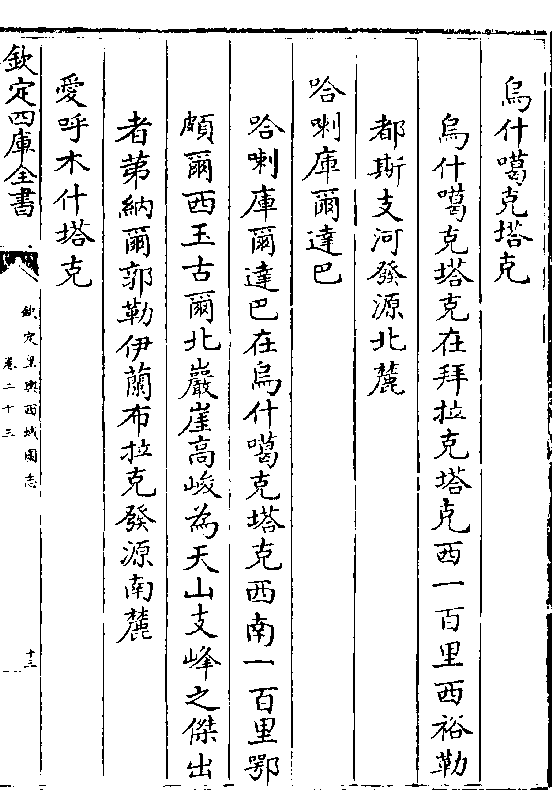 烏什噶克塔克
烏什噶克塔克在拜拉克塔克西一百里西裕勒
都斯支河發源北麓
哈喇庫爾達巴
哈喇庫爾達巴在烏什噶克塔克西南一百里鄂
頗爾西玉古爾北巖崖高峻為天山支峰之傑出
者苐納爾郭勒伊蘭布拉克發源南麓
愛呼木什塔克
欽定四庫全書
欽定皇輿西域圖志
卷二十三
十三